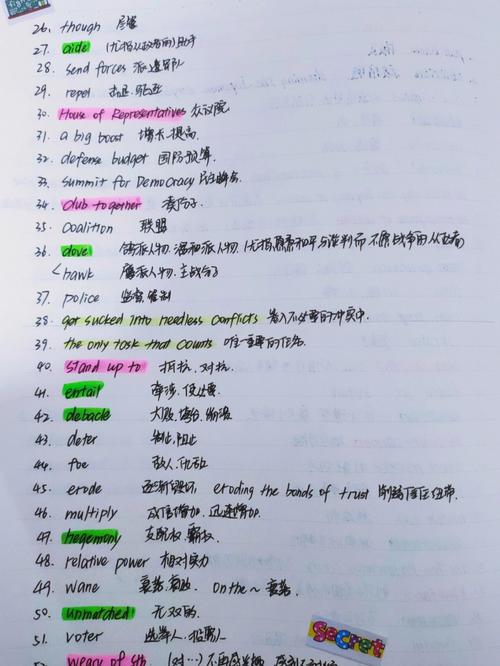 26. though 尽管
27. aide (尤指从政者的)助手
28. send forces 派遣部队
29. repel 击退.驱逐
30. House of Representatives 众议院
31. a big boost 增长.提高.
32. defense budget 国防预算.
33. Summit for Democracy 民主峰会.
34. club together 凑份子
35. coalition 联盟
36. dove 鸽派人物.温和派人物.(尤指愿意和平与谈判而不愿战争的从政者)
hawk 鹰派人物.主战分子
37. police 监察.管制
38. get sucked into needless conflicts 卷入不必要的冲突中.
39. the only task that counts 唯一重要的任务.
40. stand up to 抵抗.对抗.
41. entail 牵涉.使必要.
42. debacle 大败.崩溃
43. deter 制止.阻止
44. foe 敌人.仇敌
45. erode 逐渐毁坏 eroding the bonds of trust 削弱信任纽带.
46. multiply 成倍增加.迅速增加.
47. hegemony 支配权.霸权.
48. relative power 相对实力
49. wane 衰落. on the~ 衰落.
50. unmatched 无双的.
51. voter 选举人.投票人
weary of sth. (对…)不再感兴趣.
secret